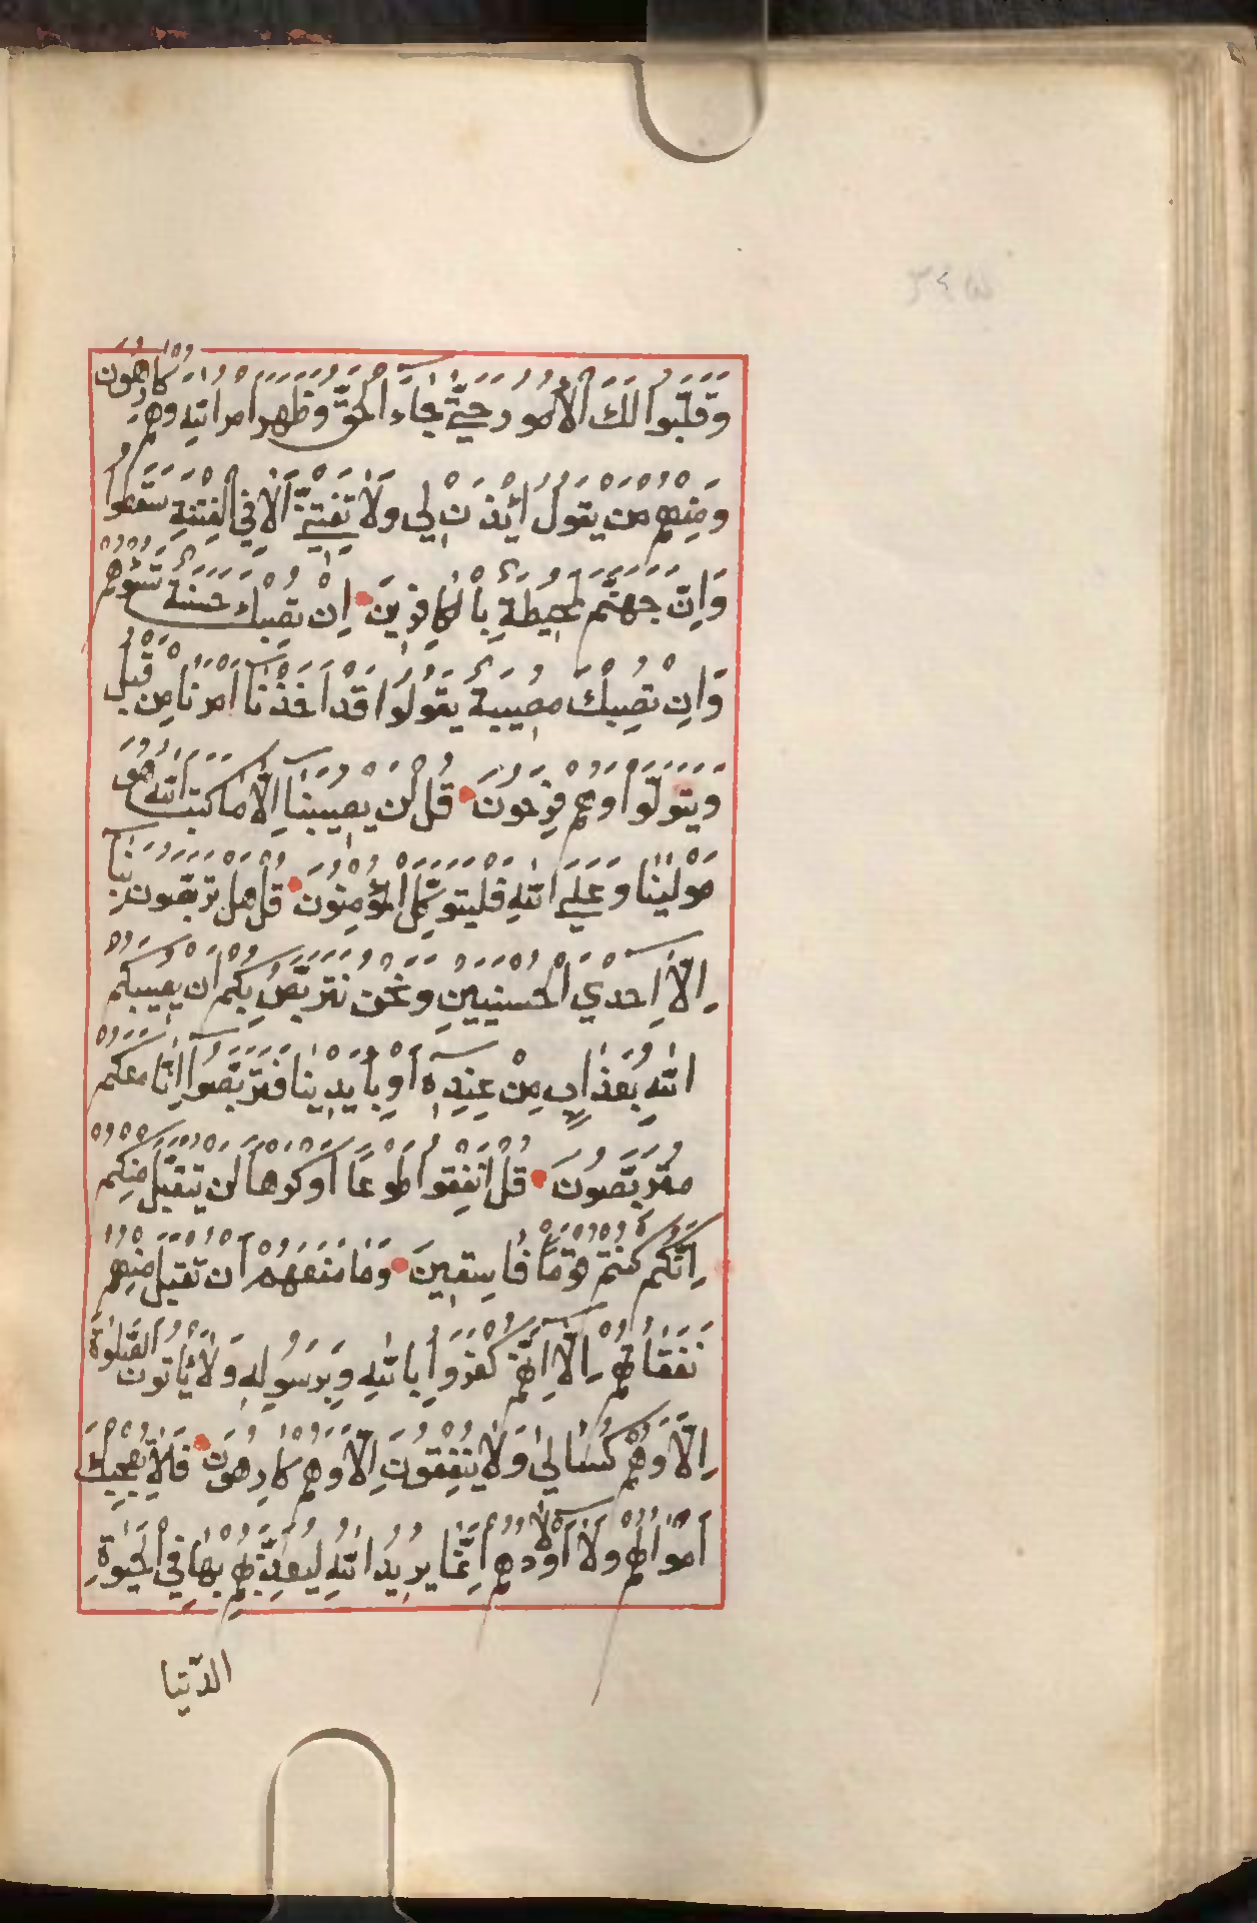 وَقَلَّبُوا لَكَ الْأُمُورَ حَتَّى جَاءَ الْحَقُّ وَظَهَرَ أَمْرُ اللهِ وَهُمْ كَارِهُونَ
وَمِنْهُمْ مَنْ يَقُولُ ائْذَنْ لِي وَلَا تَفْتِنِّي أَلَا فِي الْفِتْنَةِ سَقَطُوا
وَإِنَّ جَهَنَّمَ لَمُحِيطَةٌ بِالْكَافِرِينَ إِنْ تُصِبْكَ حَسَنَةٌ تَسُؤْهُمْ
وَإِنْ تُصِبْكَ مُصِيبَةٌ يَقُولُوا قَدْ أَخَذْنَا أَمْرَنَا مِنْ قَبْلُ
وَيَتَوَلَّوْا وَهُمْ فَرِحُونَ قُلْ لَنْ يُصِيبَنَا إِلَّا مَا كَتَبَ اللهُ هُوَ
مَوْلَيْنَا وَعَلَى اللهِ فَلْيَتَوَكَّلِ الْمُؤْمِنُونَ قُلْ هَلْ تَرَبَّصُونَ بِنَا
إِلَّا إِحْدَي الْحُسْنَيَيْنِ وَنَحْنُ نَتَرَبَّصُ بِكُمْ أَنْ يُصِيبَكُمْ
اللهُ بِعَذَابٍ مِنْ عِنْدِهِ أَوْ بِأَيْدِينَا فَتَرَبَّصُوا إِنَّا مَعَكُمْ
مُتَرَبِّصُونَ قُلْ أَنْفِقُوا طَوْعًا أَوْ كَرْهًا لَنْ يُتَقَبَّلَ مِنْكُمْ
إِنَّكُمْ كُنْتُمْ قَوْمًا فَاسِقِينَ وَمَا مَنَعَهُمْ أَنْ تُقْبَلَ مِنْهُمْ
نَفَقَاتُهُمْ إِلَّا أَنَّهُمْ كَفَرُوا بِاللهِ وَبِرَسُولِهِ وَلَا يَأْتُونَ الصَّلَوٰةَ
إِلَّا وَهُمْ كُسَالَىٰ وَلَا يُنْفِقُونَ إِلَّا وَهُمْ كَارِهُونَ فَلَا تُعْجِبْكَ
أَمْوَالُهُمْ وَلَا أَوْلَادُهُمْ إِنَّمَا يُرِيدُ اللهُ لِيُعَذِّبَهُمْ بِهَا فِي الْحَيَوٰةِ
الدّنيا